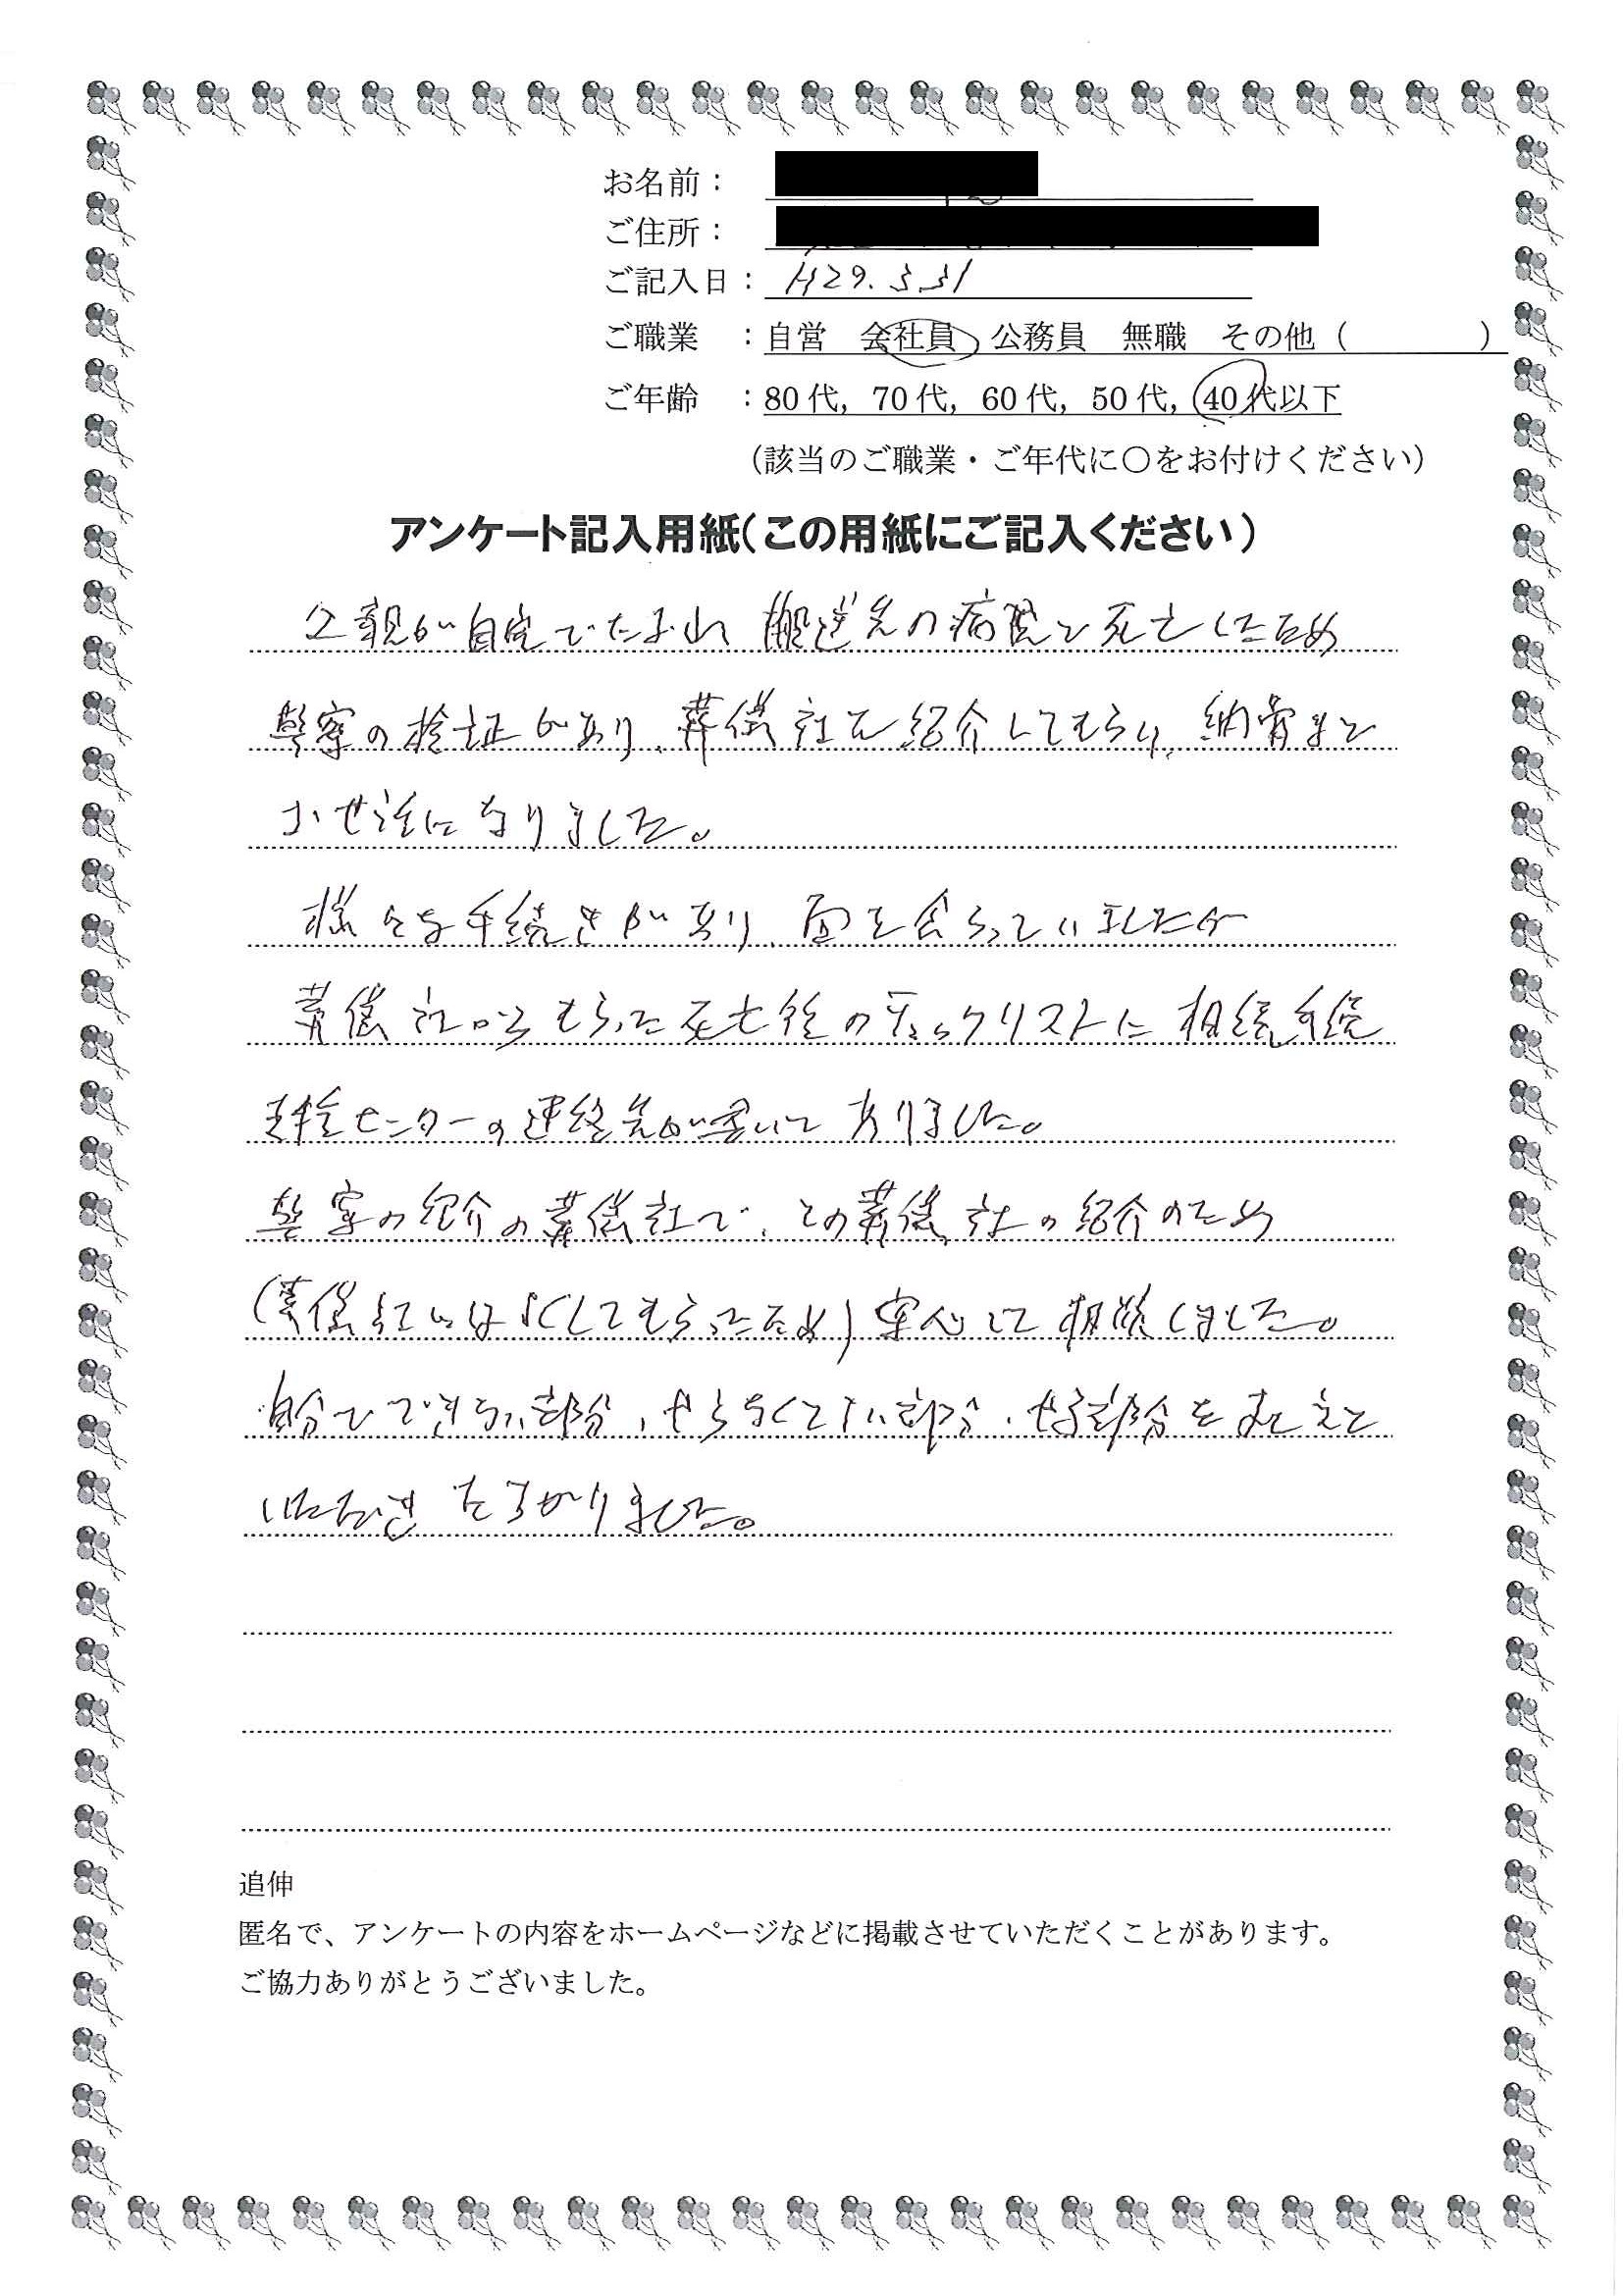 お名前：
ご住所：
ご記入日： H29.3.31
ご職業 ： 自営 会社員 公務員 無職 その他（ ）
ご年齢 ： 80代，70代，60代，50代，40代以下
（該当のご職業・ご年代に〇をお付けください）
アンケート記入用紙（この用紙にご記入ください）
父親が自宅でたおれ 搬送先の病院で死亡したため
警察の検証があり、葬儀社を紹介してもらい、納骨まで
おせ話になりました。
様々な手続きがあり、面を会らっていましたが
葬儀社からもらった死亡後のチェックリストに相続手続
支援センターの連絡先が書いてありました。
警察の紹介の葬儀社で、その葬儀社の紹介のため
(葬儀社にはよくしてもらったため)安心して相談しました。
自分でできない部分、やらなくてよい部分、やる部分をおしえて
いただき たすかりました。
追伸
匿名で、アンケートの内容をホームページなどに掲載させていただくことがあります。
ご協力ありがとうございました。